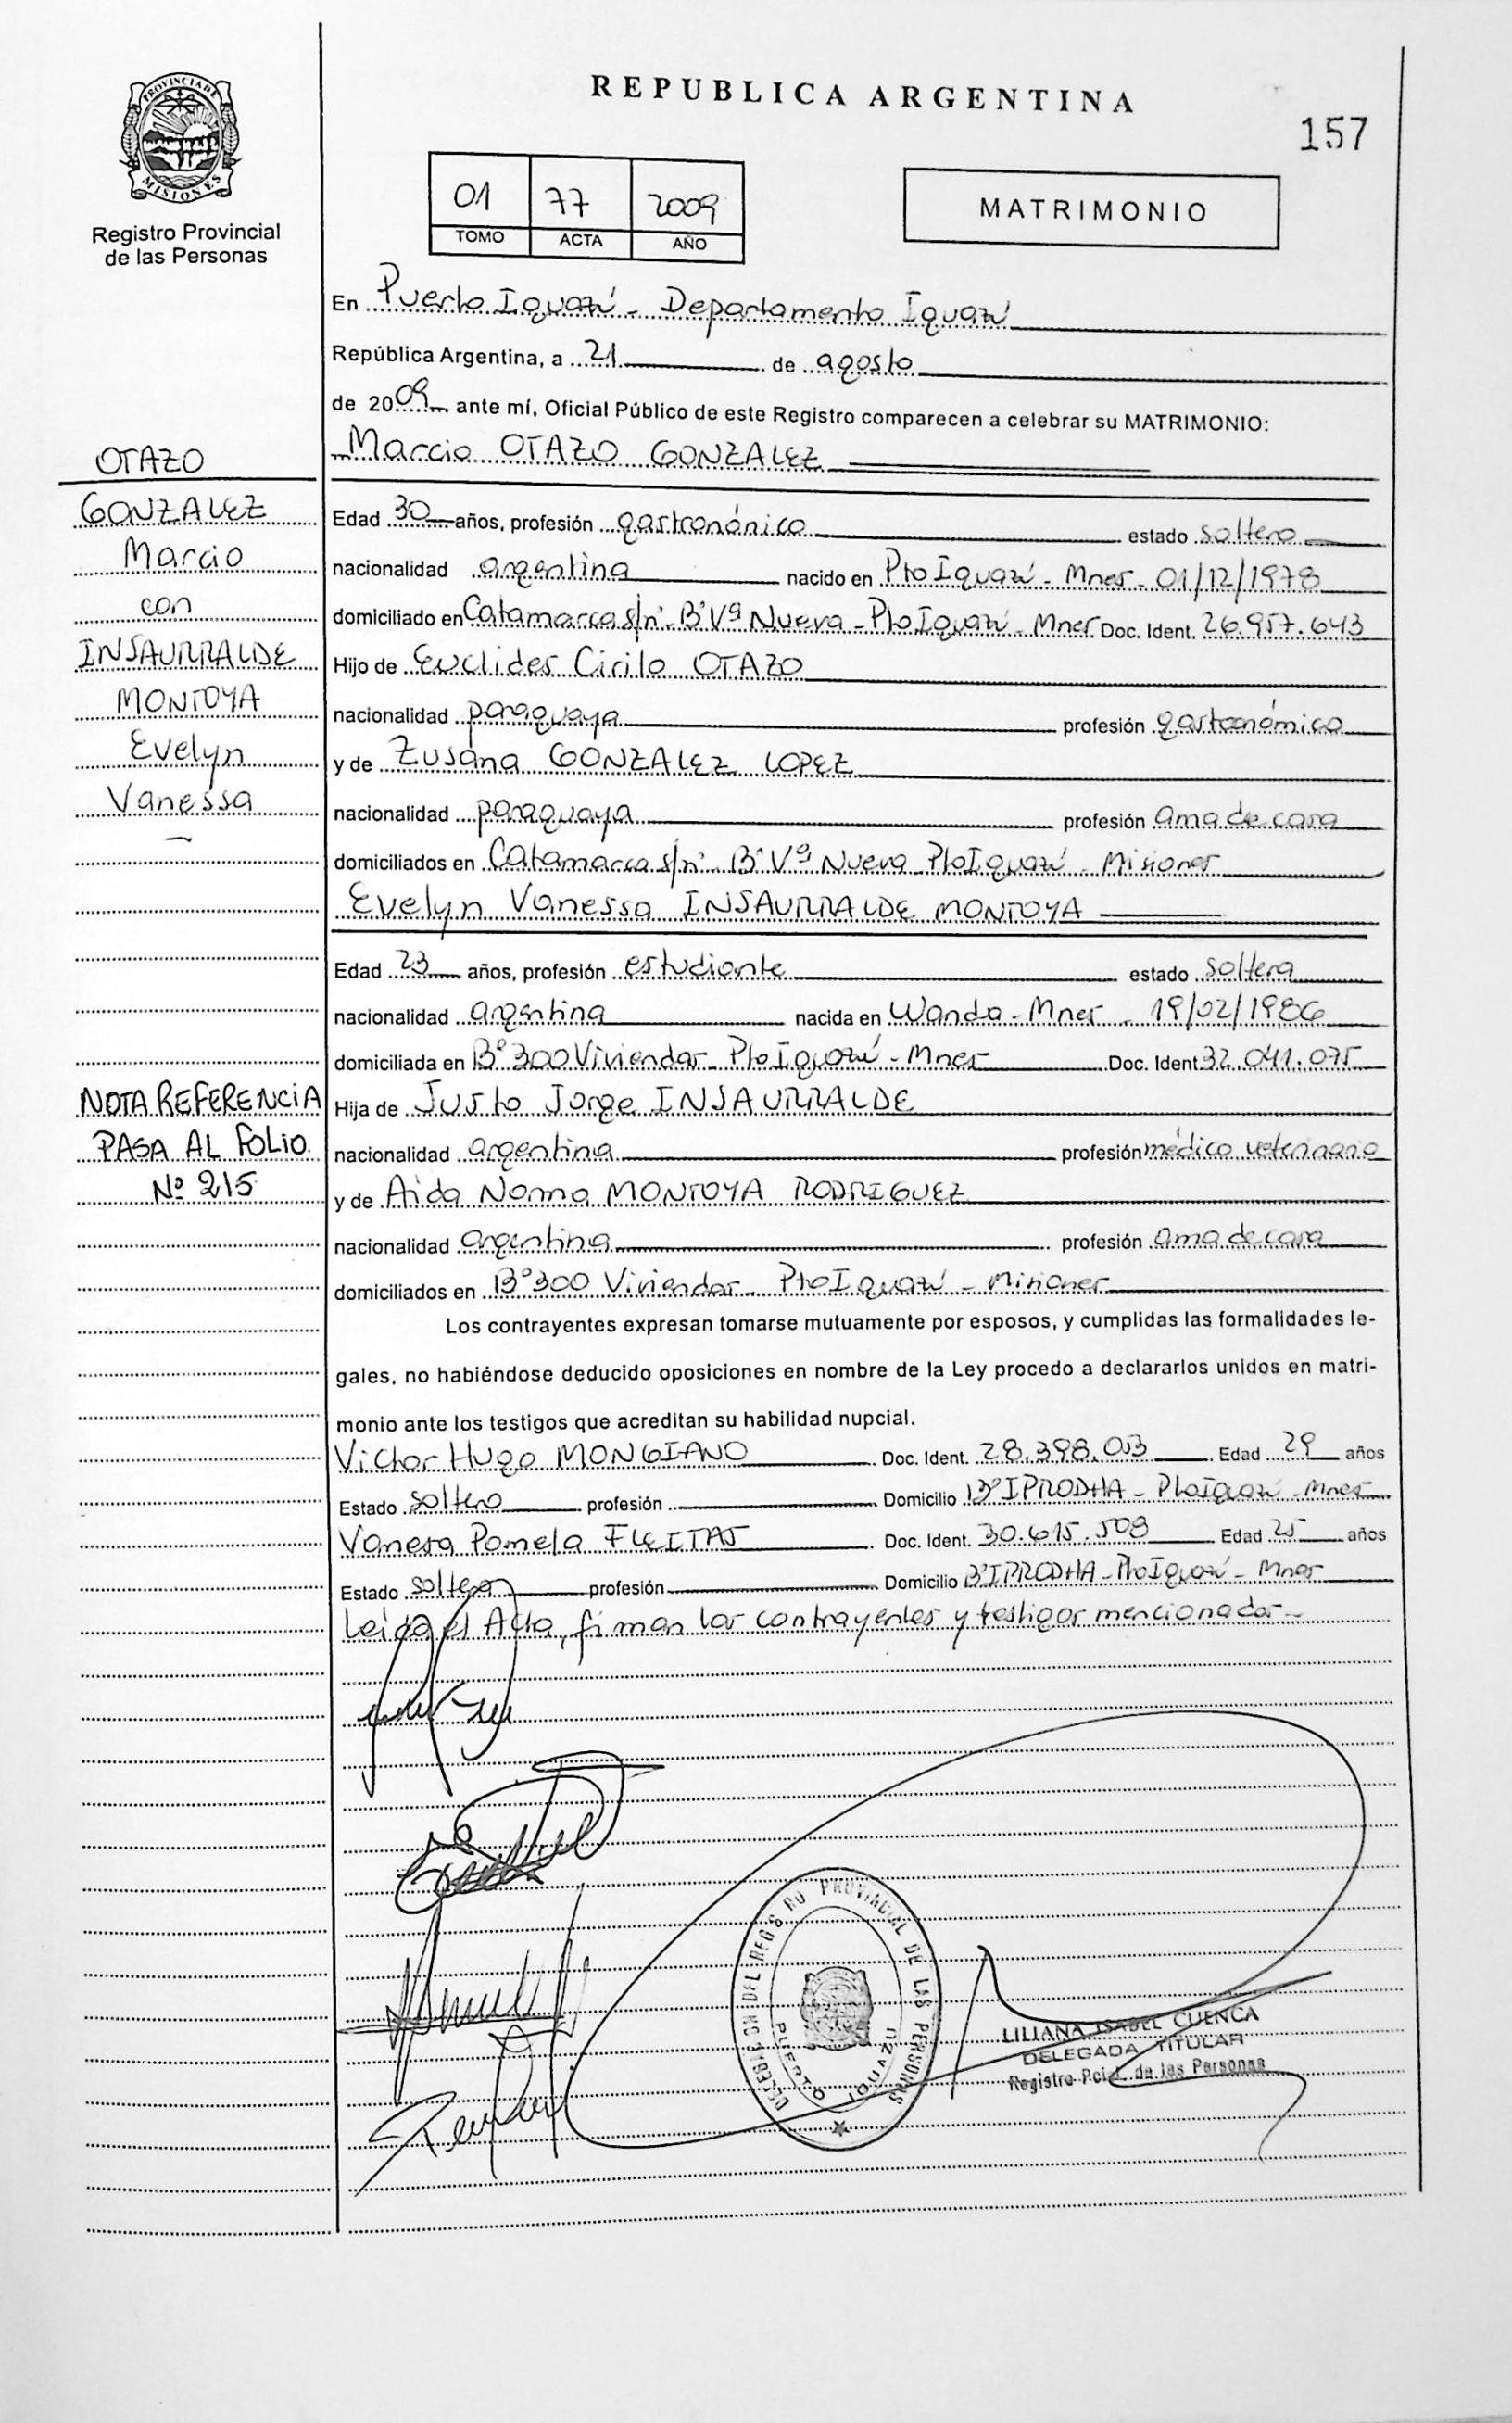 PROVINCIA DE
MISIONES
Registro Provincial
de las Personas
REPUBLICA ARGENTINA
157
01 77 2009
TOMO ACTA AÑO
MATRIMONIO
En Puerto Iguazú - Departamento Iguazú
República Argentina, a 21 de agosto
de 2009 ante mí, Oficial Público de este Registro comparecen a celebrar su MATRIMONIO:
Marcio OTAZO GONZALEZ
Edad 30 años, profesión gastronómico estado soltero
nacionalidad argentina nacido en Pto Iguazú - Mnes - 01/12/1978
domiciliado en Catamarca s/nº - Bº Vª Nueva - Pto Iguazú - Mnes Doc. Ident. 26.957.643
Hijo de Euclides Cirilo OTAZO
nacionalidad paraguaya profesión gastronómico
y de Zusana GONZALEZ LOPEZ
nacionalidad paraguaya profesión ama de casa
domiciliados en Catamarca s/nº - Bº Vª Nueva Pto Iguazú - Misiones
Evelyn Vanessa INSAURRALDE MONTOYA
Edad 23 años, profesión estudiante estado soltera
nacionalidad argentina nacida en Wanda - Mnes - 19/02/1986
domiciliada en Bº 300 Viviendas - Pto Iguazú - Mnes Doc. Ident. 32.041.075
Hija de Justo Jorge INSAURRALDE
nacionalidad argentina profesión médico veterinario
y de Aida Norma MONTOYA RODRIGUEZ
nacionalidad argentina profesión ama de casa
domiciliados en Bº 300 Viviendas - Pto Iguazú - Misiones
Los contrayentes expresan tomarse mutuamente por esposos, y cumplidas las formalidades le-
gales, no habiéndose deducido oposiciones en nombre de la Ley procedo a declararlos unidos en matri-
monio ante los testigos que acreditan su habilidad nupcial.
Victor Hugo MONGIANO Doc. Ident. 28.398.053 Edad 29 años
Estado soltero profesión Domicilio Bº IPRODHA - Pto Iguazú - Mnes
Vanesa Pamela FLEITAS Doc. Ident. 30.615.508 Edad 25 años
Estado soltera profesión Domicilio Bº IPRODHA - Pto Iguazú - Mnes
Leída el Acta, firman los contrayentes y testigos mencionados -
OTAZO
GONZALEZ
Marcio
con
INSAURRALDE
MONTOYA
Evelyn
Vanessa
NOTA REFERENCIA
PASA AL FOLIO
Nº 215
DELEGACION DEL REGISTRO PROVINCIAL DE LAS PERSONAS
PUERTO IGUAZU
LILIANA ISABEL CUENCA
DELEGADA TITULAR
Registro Pcial. de las Personas